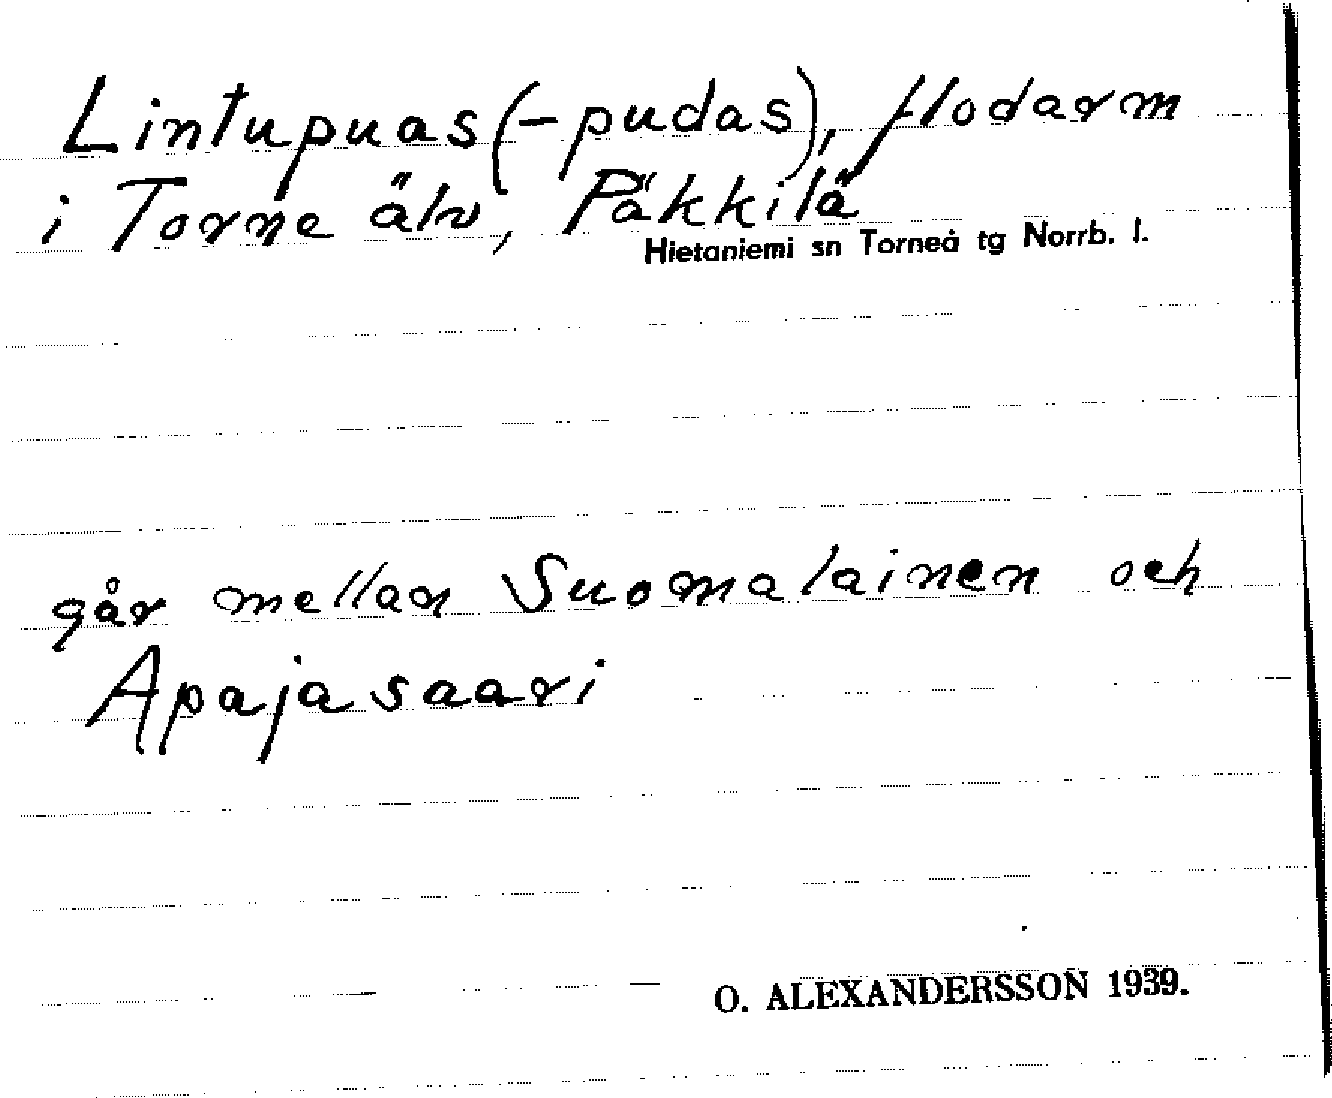 Lintupuas (-pudas), flodarm
i Torne älv, Päkkilä
Hietaniemi sn Torneå tg Norrb. l.
går mellan Suomalainen och
Apajasaari
O. ALEXANDERSSON 1939.